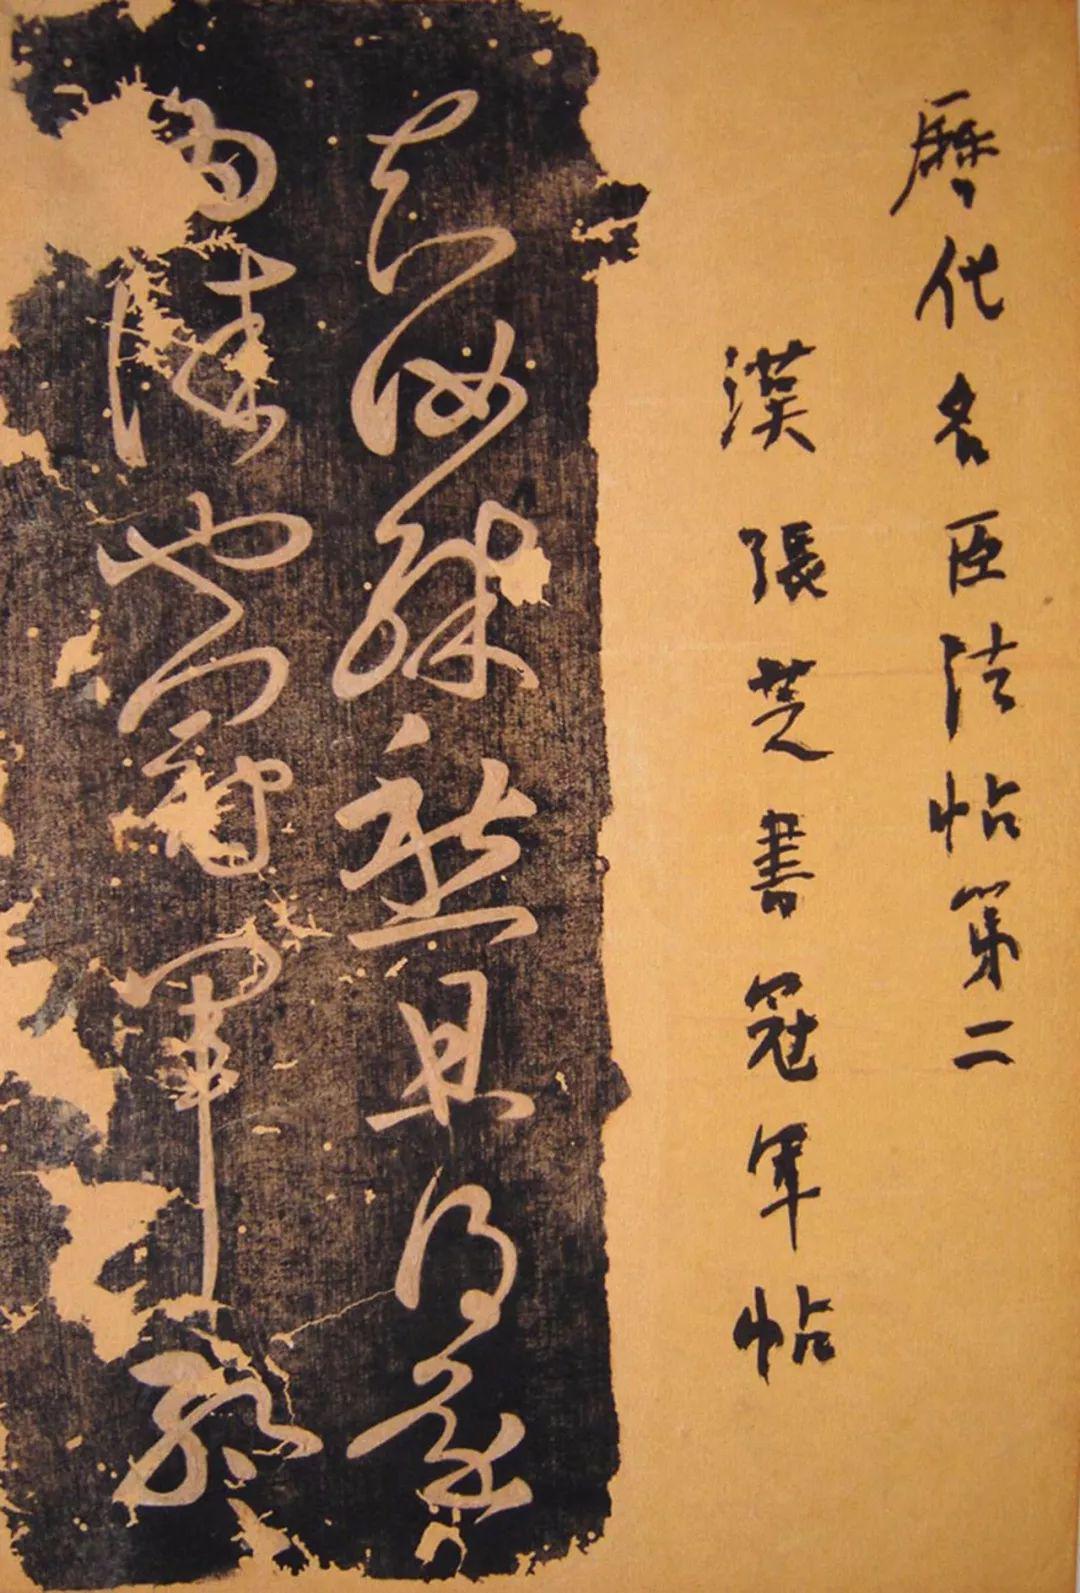 歷代名臣法帖第二
漢張芝書冠軍帖
知汝殊愁且得還
為佳也冠軍暫